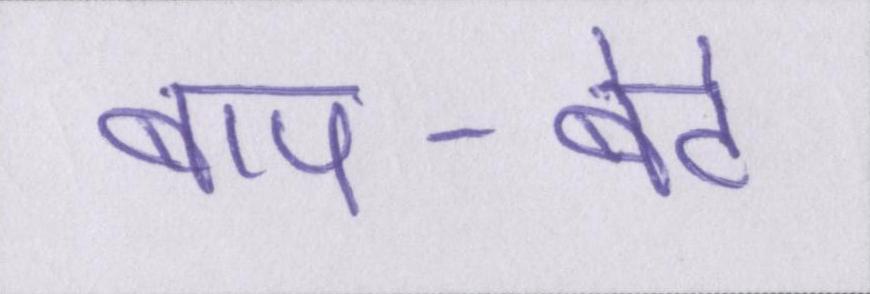 बाप-बेटे